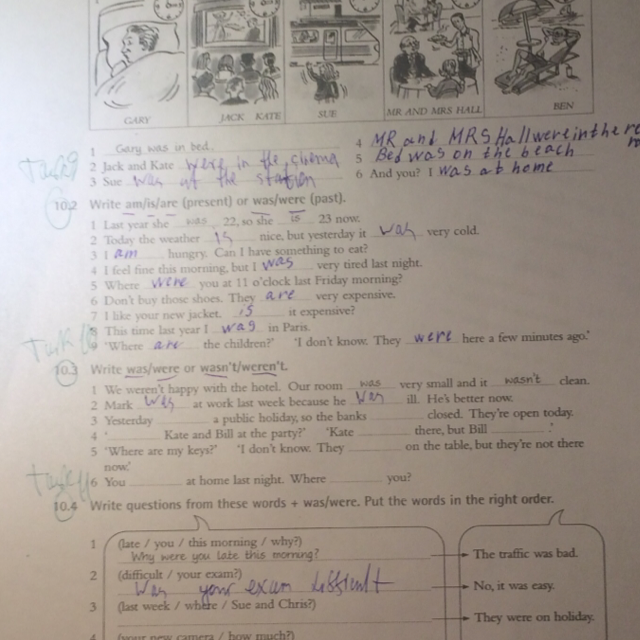 GARY JACK KATE SUE MR AND MRS HALL BEN
1 Gary was in bed.
2 Jack and Kate were in the cinema
3 Sue was at the station
4 MR and MRS Hall were in the
5 Bed was on the beach
6 And you? I was at home
10.2 Write am/is/are (present) or was/were (past).
1 Last year she was 22, so she is 23 now.
2 Today the weather is nice, but yesterday it was very cold.
3 I am hungry. Can I have something to eat?
4 I feel fine this morning, but I was very tired last night.
5 Where were you at 11 o'clock last Friday morning?
6 Don't buy those shoes. They are very expensive.
7 I like your new jacket. is it expensive?
8 This time last year I was in Paris.
'Where are the children?' 'I don't know. They were here a few minutes ago.'
10.3 Write was/were or wasn't/weren't.
1 We weren't happy with the hotel. Our room was very small and it wasn't clean.
2 Mark was at work last week because he was ill. He's better now.
3 Yesterday ______ a public holiday, so the banks ______ closed. They're open today.
4 '______ Kate and Bill at the party?' 'Kate ______ there, but Bill ______.'
5 'Where are my keys?' 'I don't know. They ______ on the table, but they're not there
now.'
6 You ______ at home last night. Where ______ you?
10.4 Write questions from these words + was/were. Put the words in the right order.
1 (late / you / this morning / why?)
Why were you late this morning? The traffic was bad.
2 (difficult / your exam?)
Was your exam difficult No, it was easy.
3 (last week / where / Sue and Chris?)
They were on holiday.
(your new camera / how much?)